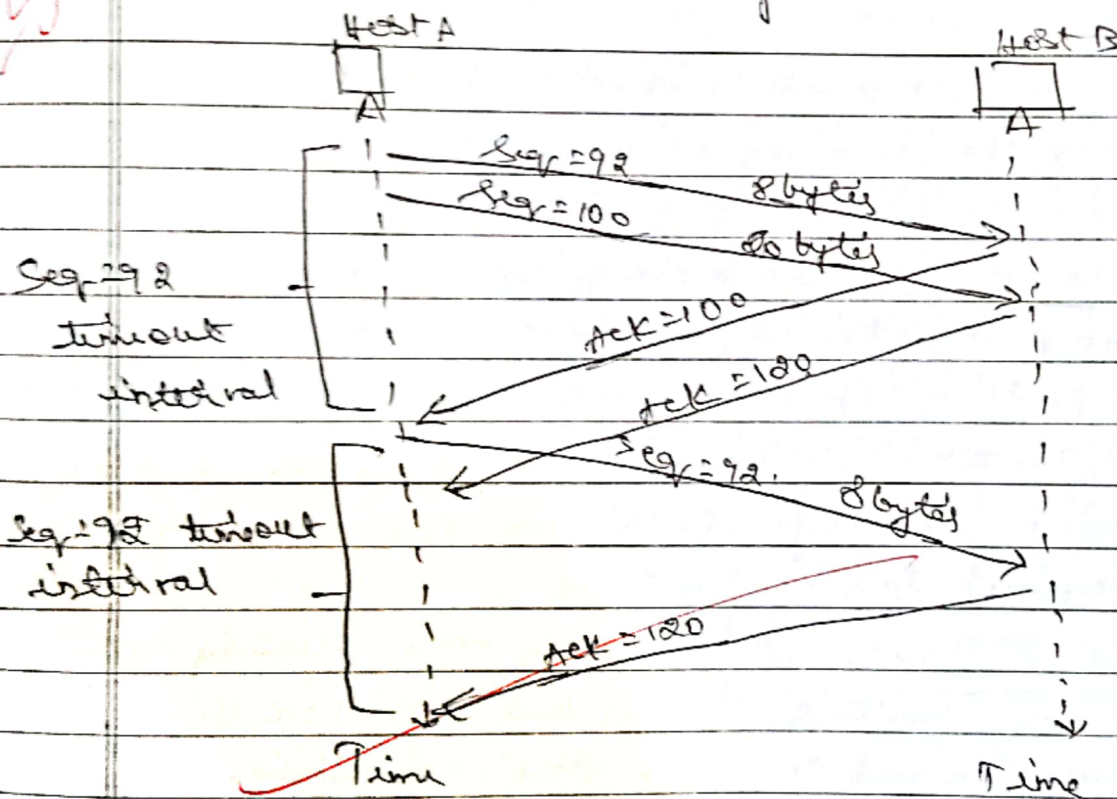 Host A
Host B
Seq=92
8 bytes
Seq=100
20 bytes
Seq=92
timeout
interval
Ack=100
Ack=120
Seq=92.
8 bytes
Seq=92 timeout
interval
Ack=120
Time
Time